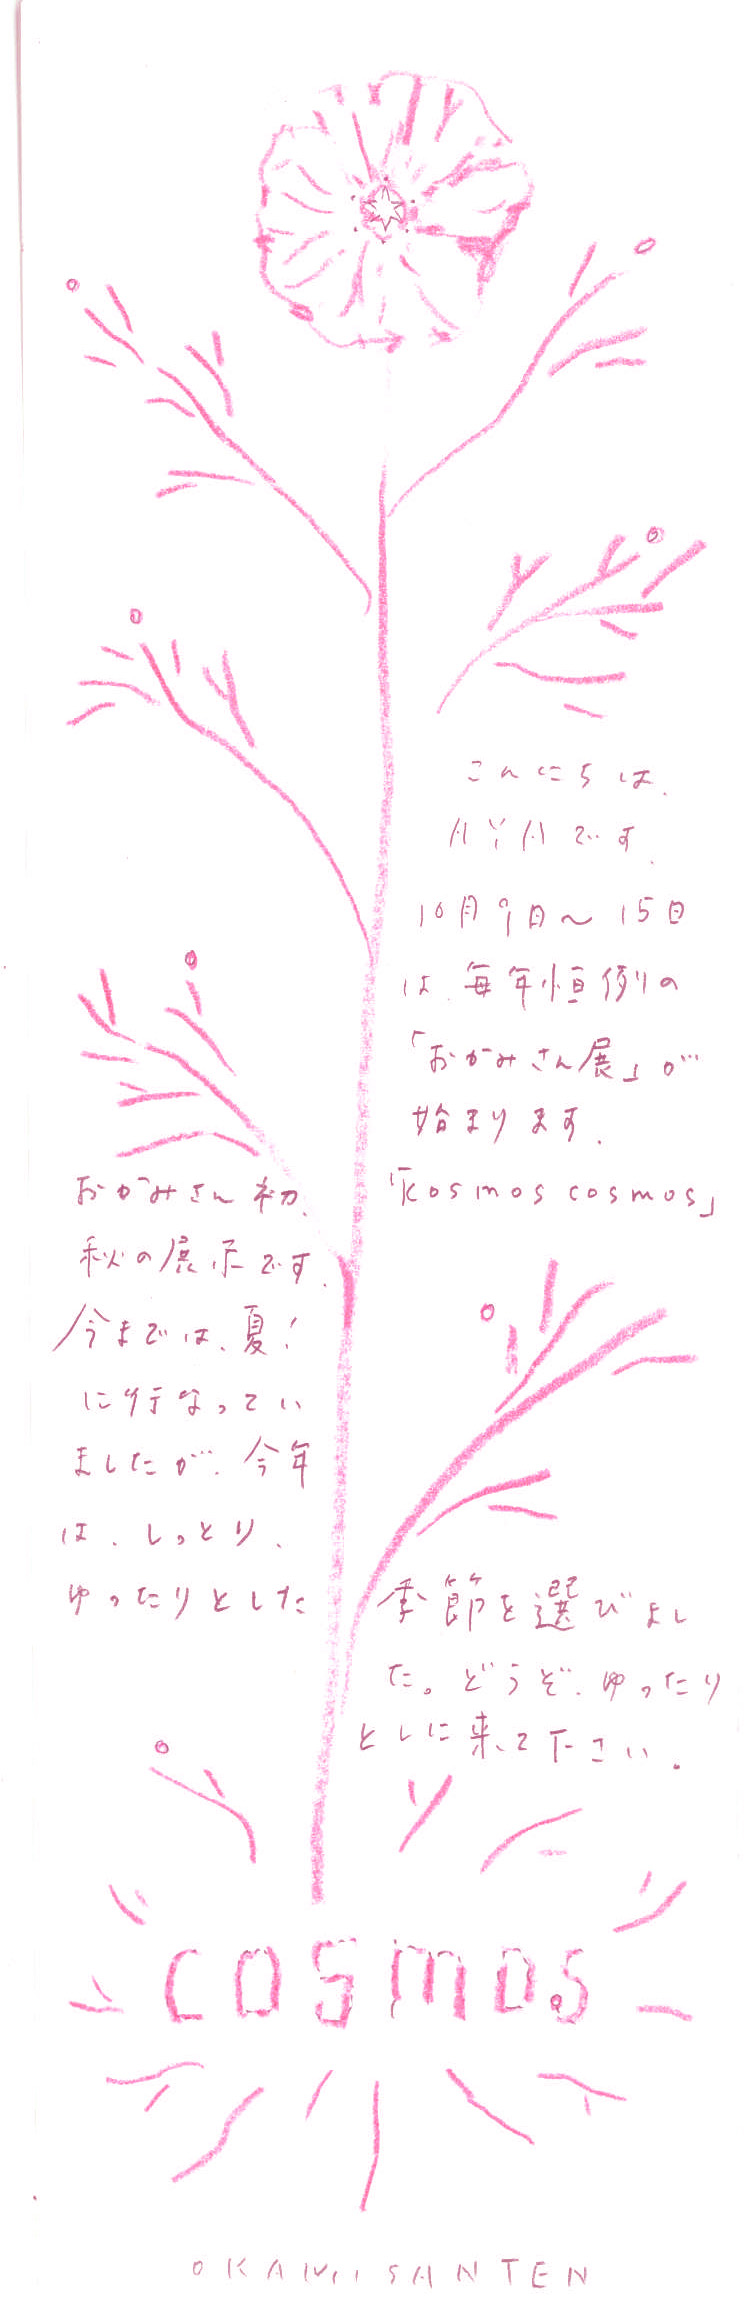 こんにちは、
AYAです。
10月9日〜15日
は、毎年恒例の
「おかみさん展」が
始まります。
「kosmos cosmos」
おかみさん初、
秋の展示です。
今までは、夏!
に行なってい
ましたが、今年
は、しっとり、
ゆったりとした
季節を選びまし
た。どうぞ、ゆったり
としに来て下さい。
COSMOS
OKAMISANTEN